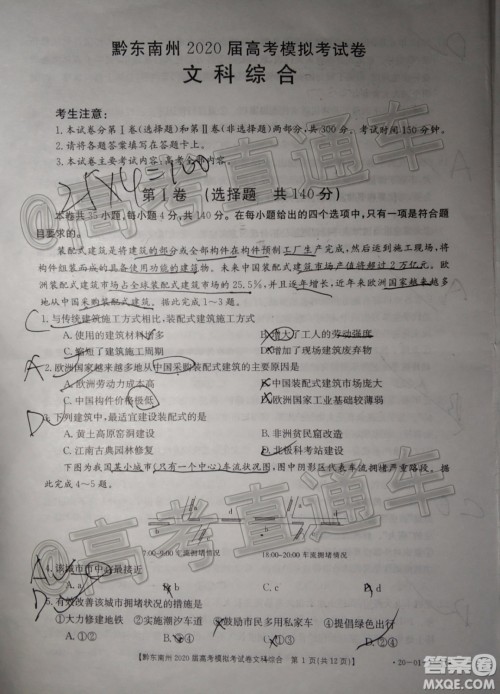 黔东南州 2020 届高考模拟考试卷
文科综合
考生注意:
1.本试卷分第Ⅰ卷(选择题)和第Ⅱ卷(非选择题)两部分,共300分。考试时间150分钟。
2.请将各题答案填写在答题卡上。
3.本试卷主要考试内容:高考全部内容。
25×4=100
第Ⅰ卷 (选择题 共140分)
本卷共35小题,每小题4分,共140分。在每小题给出的四个选项中,只有一项是符合题
目要求的。
装配式建筑是将建筑的部分或全部构件在构件预制工厂生产,然后运输到施工现场,将
构件组装而成的具备使用功能的建筑物。未来中国装配式建筑市场产值将超过2万亿元。欧
洲装配式建筑市场占全球建筑市场的25.5%,并且逐年增长,近年来欧洲国家越来越多地
从中国采购装配式建筑。据此完成1~3题。
C 1.与传统建筑施工方式相比,装配式建筑施工方式
A.使用的建筑材料增多 B.增大了工人的劳动强度
C.缩短了建筑施工周期 D.增加了施工现场噪声
A 2.欧洲国家越来越多地从中国采购装配式建筑的主要原因是
A.欧洲劳动力成本高 B.中国装配式建筑市场庞大
C.中国构件价格极低 D.欧洲国家工业基础薄弱
D 3.下列建筑中,最适宜建设装配式的是
A.黄土高原窑洞建设 B.非洲贫民窟改造
C.江南古典园林修复 D.北极科考站建设
下图为我国某小城市(只有一个中心)车流状况图,图中阴影区代表车流拥堵严重路段。据此
完成4~5题。
a b c d
7:00-9:00车流拥堵情况 18:00-20:00车流拥堵情况
4.该城市市中心最接近
A.a B.b C.c D.d
5.有效改善该城市拥堵状况的措施是
①大力修建地铁 ②实施潮汐车道 ③鼓励市民多用私家车 ④提倡绿色出行
A.①② B.①③ C.②③ D.②④
【黔东南州2020届高考模拟考试卷文科综合 第1页(共12页)】
·20-01
@高考直通车
@高考直通车
答案圈
MXQE.COM